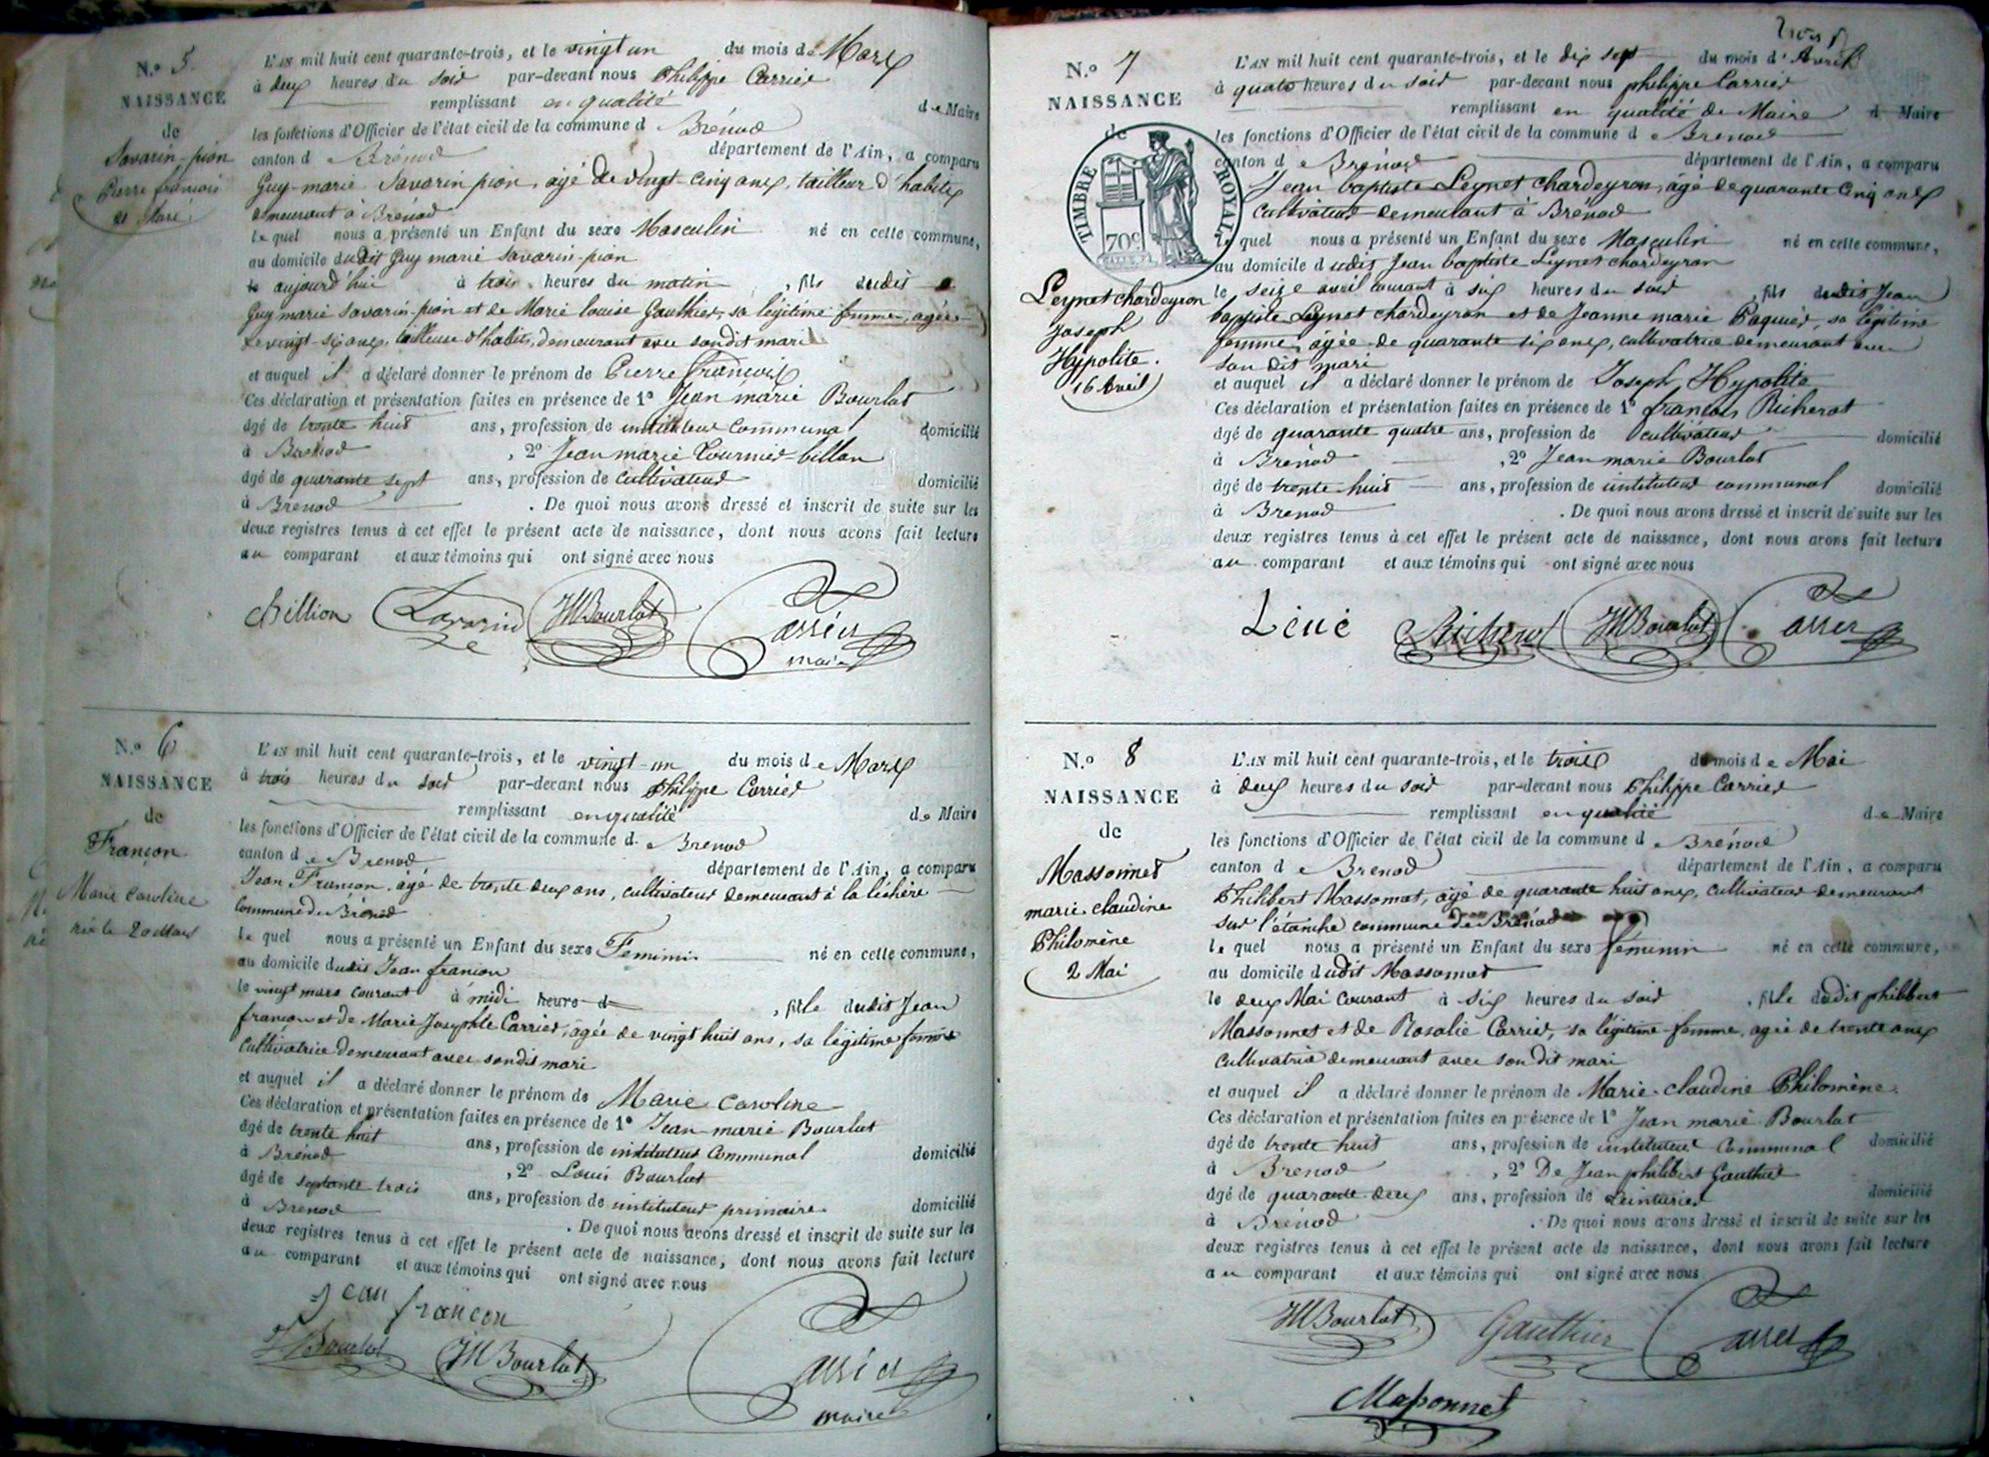 N.º 5
NAISSANCE
de
Savarin-pion
Pierre francois
21 Mars
L'AN mil huit cent quarante-trois, et le vingt un du mois de Mars
à deux heures du soir par-devant nous Philippe Carrier
remplissant en qualité de Maire
les fonctions d'Officier de l'état civil de la commune d Brénod
canton d Brénod département de l'Ain, a comparu
Guy-marie Savarin pion, agé de vingt-cinq ans, tailleur d'habits
demeurant à Brénod
le quel nous a présenté un Enfant du sexe Masculin né en cette commune,
au domicile dudit Guy marie savarin-pion
le aujourd'hui à trois heures du matin, fils dudit
Guy marie savarin-pion et de Marie louise Gauthier, sa légitime femme, agée
de vingt-six ans, tailleuse d'habits, demeurant avec sondit mari
et auquel il a déclaré donner le prénom de Pierre francois
Ces déclaration et présentation faites en présence de 1º Jean marie Bourlot
âgé de trente huit ans, profession de instituteur communal domicilié
à Brénod, 2º Jean marie Tournier-billon
âgé de quarante sept ans, profession de cultivateur domicilié
à Brénod. De quoi nous avons dressé et inscrit de suite sur les
deux registres tenus à cet effet le présent acte de naissance, dont nous avons fait lecture
au comparant et aux témoins qui ont signé avec nous
Savarin JMBourlot Carrier
maire
N.º 6
NAISSANCE
de
Françon
Marie caroline
née le 20 Mars
L'AN mil huit cent quarante-trois, et le vingt-un du mois de Mars
à trois heures du soir par-devant nous Philippe Carrier
remplissant en qualité de Maire
les fonctions d'Officier de l'état civil de la commune d. e Brenod
canton d e Brenod département de l'Ain, a comparu
Jean Françon, âgé de trente deux ans, cultivateur demeurant à la léchère
commune de Brénod
le quel nous a présenté un Enfant du sexe Feminin né en cette commune,
au domicile dudit Jean françon
le vingt mars courant à midi heure d, fille dudit Jean
françon et de Marie Josephte Carrier, agée de vingt huit ans, sa légitime femme
cultivatrice demeurant avec sondit mari
et auquel il a déclaré donner le prénom de Marie Caroline
Ces déclaration et présentation faites en présence de 1º Jean-marie Bourlot
âgé de trente huit ans, profession de instituteur communal domicilié
à Brénod, 2º Louis Bourlot
âgé de septante trois ans, profession de instituteur primaire domicilié
à Brenod. De quoi nous avons dressé et inscrit de suite sur les
deux registres tenus à cet effet le présent acte de naissance, dont nous avons fait lecture
au comparant et aux témoins qui ont signé avec nous
Jean françon
Bourlot JMBourlot Carrier
maire
N.º 7
NAISSANCE
de
TIMBRE ROYAL
70c
Leynet chardeyron
Joseph
Hypolite.
16 Avril
L'AN mil huit cent quarante-trois, et le dix sept du mois d'Avril
à quatre heures du soir par-devant nous philippe Carrier
remplissant en qualité de Maire d Maire
les fonctions d'Officier de l'état civil de la commune d e Brenod
canton d e Brénod département de l'Ain, a comparu
Jean baptiste Leynet chardeyron, âgé de quarante cinq ans
cultivateur demeurant à Brénod
le quel nous a présenté un Enfant du sexe Masculin né en cette commune,
au domicile dudit Jean baptiste Leynet chardeyron
le seize avril courant à six heures du soir, fils dudit Jean
baptiste Leynet chardeyron et de Jeanne marie Paquier, sa légitime
femme, âgée de quarante six ans, cultivatrice demeurant avec
son dit mari
et auquel il a déclaré donner le prénom de Joseph Hypolite
Ces déclaration et présentation faites en présence de 1º francois Richerot
âgé de quarante quatre ans, profession de cultivateur domicilié
à Brenod, 2º Jean marie Bourlot
âgé de trente-huit ans, profession de instituteur communal domicilié
à Brenod. De quoi nous avons dressé et inscrit de suite sur les
deux registres tenus à cet effet le présent acte de naissance, dont nous avons fait lecture
au comparant et aux témoins qui ont signé avec nous
Richerot JMBourlot Carrier
N.º 8
NAISSANCE
de
Massonnet
marie-claudine
Philomène
2 Mai
L'AN mil huit cent quarante-trois, et le trois du mois de Mai
à deux heures du soir par-devant nous Philippe Carrier
remplissant en qualité de Maire
les fonctions d'Officier de l'état civil de la commune d e Brénod
canton d e Brenod département de l'Ain, a comparu
Philibert Massonnet, âgé de quarante huit ans, cultivateur demeurant
sur l'étanche commune de Brénod
le quel nous a présenté un Enfant du sexe féminin né en cette commune,
au domicile dudit Massonnet
le deux Mai courant à six heures du soir, fille dudit philibert
Massonnet et de Rosalie Carrier, sa légitime femme, agée de trente ans
cultivatrice demeurant avec son dit mari
et auquel il a déclaré donner le prénom de Marie-claudine Philomène.
Ces déclaration et présentation faites en présence de 1º Jean marie Bourlot
âgé de trente huit ans, profession de instituteur Communal domicilié
à Brenod, 2º De Jean philibert Gauthier
âgé de quarante-deux ans, profession de teinturier domicilié
à Brénod. De quoi nous avons dressé et inscrit de suite sur les
deux registres tenus à cet effet le présent acte de naissance, dont nous avons fait lecture
au comparant et aux témoins qui ont signé avec nous
JMBourlot Gauthier Carrier
Massonnet